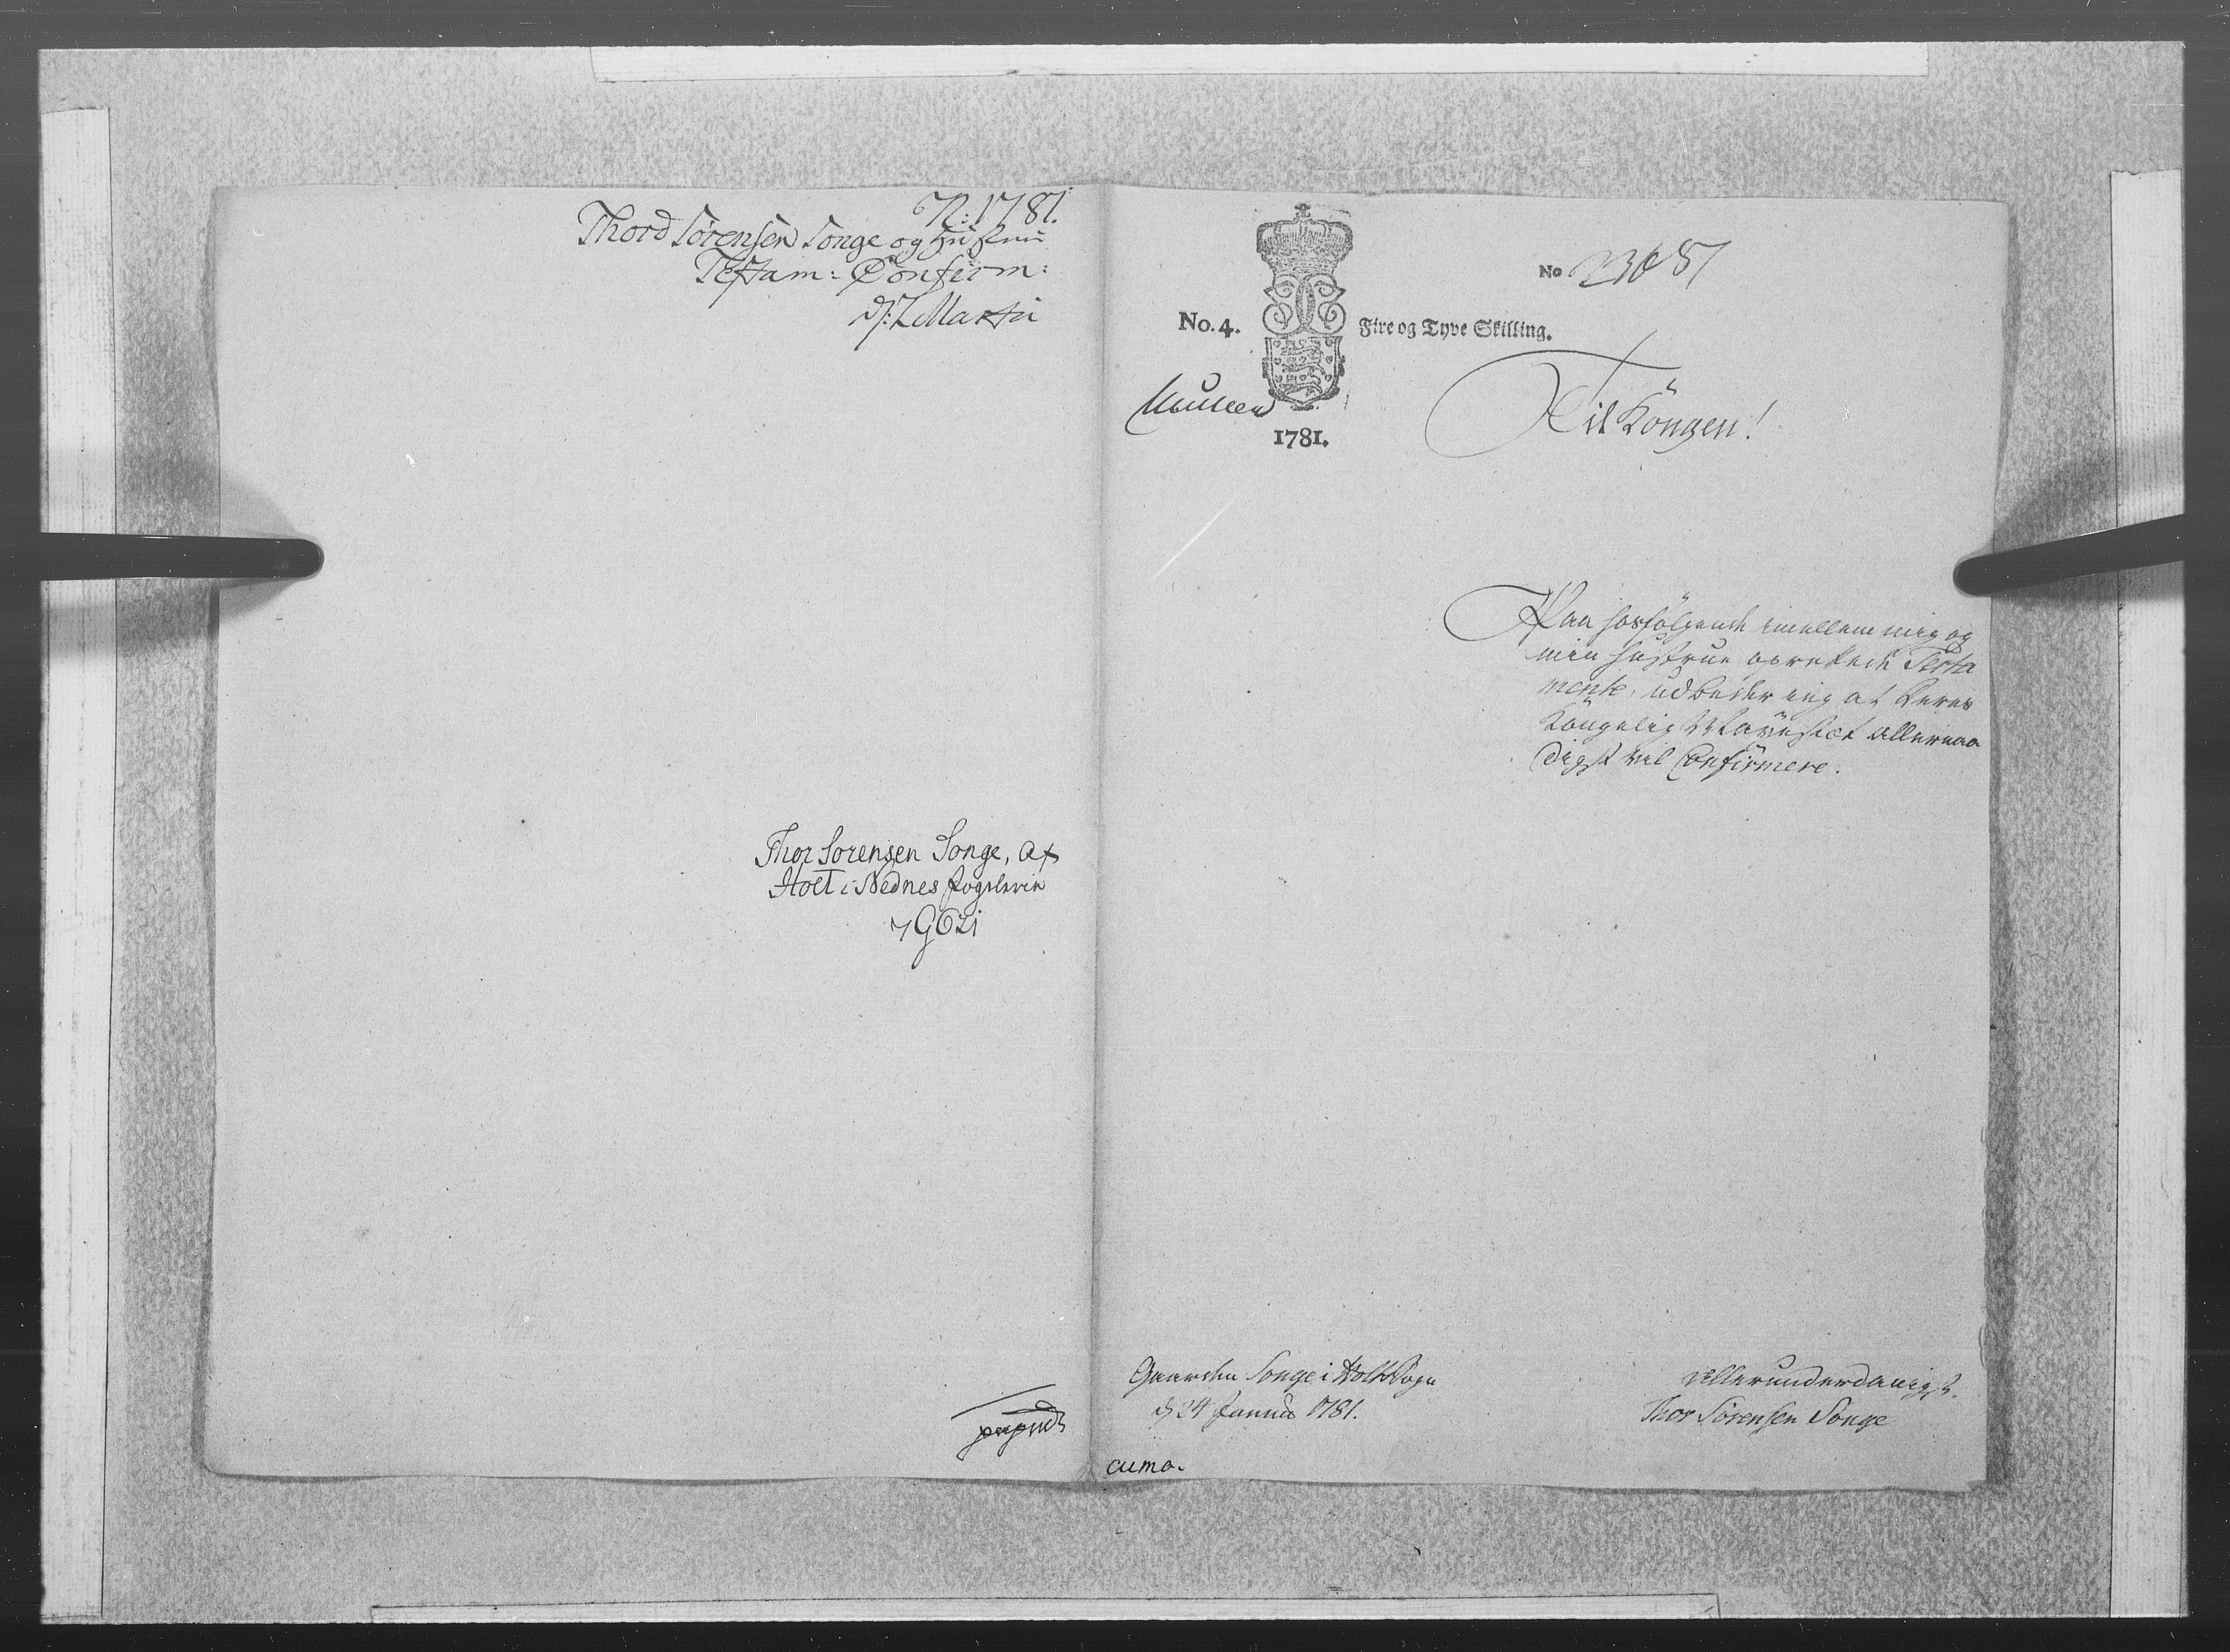 N: 1781.
Thord Sörensen Songe og Hustrue
Testam: Confirm:
d: 7 Martii
Thor Sorensen Songe, af
Holt i Nednes fogderie
No 23087
No. 4. Fire og Tyve Skilling.
1781.
Til Kongen!
Paa hosfölgende imellem mig og
min Hustrue oprettede Testa
mente, udbeder mig at Deres
Kongelig Mayestet allernaa
digst vil Confirmere.
Gaarden Songe i Holt Sogn
d 24 Janua 1781.
Allerunderdanigst.
Thor Sörensen Songe